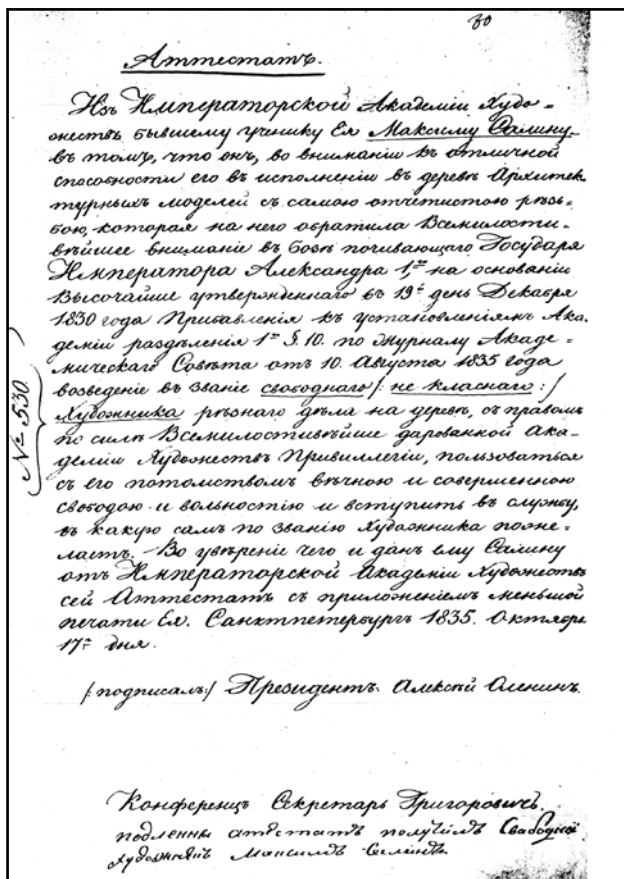 30
Аттестатъ.
Изъ Императорской Академіи Худо-
жествъ бывшему ученику Ея Максиму Салину
въ томъ, что онъ, во вниманіи къ отличной
способности его въ исполненіи въ деревѣ Архитек
турныхъ моделей съ самою отчетистою рѣзь-
бою, которая на него обратила Всемилости-
вѣйшее вниманіе въ бозѣ почивающаго Государя
Императора Александра 1го на основаніи
Высочайше утвержденнаго въ 19й день Декабря
1830 года Прибавленія къ установленіямъ Ака-
деміи раздѣленія 1го §. 10. по журналу Акаде-
мическаго Совѣта отъ 10. Августа 1835 года
возведенъ въ званіе свободнаго /: не класнаго :/
Художника рѣзнаго дѣла на деревѣ, съ правомъ
по силѣ Всемилостивѣйше дарованной Ака-
деміи Художествъ Привиллегіи, пользоваться
съ его потомствомъ вѣчною и совершенною
свободою и вольностію и вступить въ службу,
въ какую самъ по званію художника поже-
лаетъ. Во увѣреніе чего и данъ ему Салину
отъ Императорской Академіи Художествъ
сей Аттестатъ съ приложеніемъ меньшой
печати Ея. Санктпетербургъ 1835. Октября
17го дня.
№ 530.
/: подписалъ :/ Президентъ: Алексѣй Оленинъ.
Конференцъ Секретарь Григоровичъ.
подленны атестатъ получилъ Свабодной
художникъ Максимъ